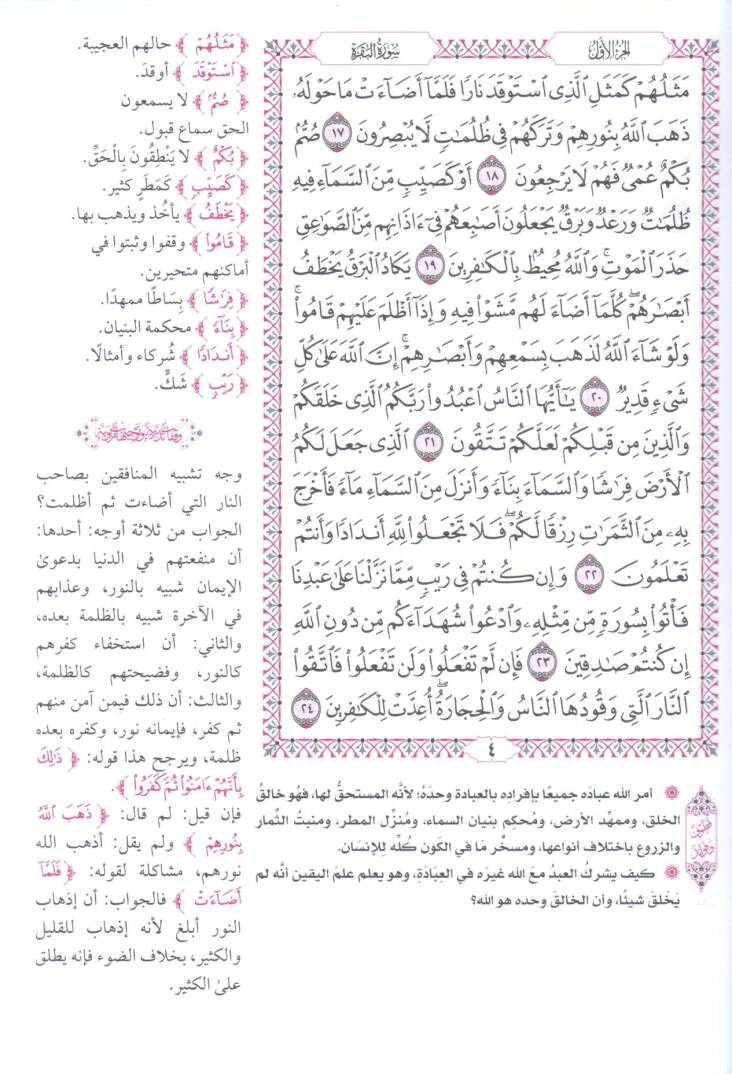 الجزء الأول
سورة البقرة
مَثَلُهُمْ كَمَثَلِ ٱلَّذِى ٱسْتَوْقَدَ نَارًا فَلَمَّآ أَضَآءَتْ مَا حَوْلَهُۥ
ذَهَبَ ٱللَّهُ بِنُورِهِمْ وَتَرَكَهُمْ فِى ظُلُمَٰتٍ لَّا يُبْصِرُونَ ١٧ صُمٌّۢ
بُكْمٌ عُمْىٌ فَهُمْ لَا يَرْجِعُونَ ١٨ أَوْ كَصَيِّبٍ مِّنَ ٱلسَّمَآءِ فِيهِ
ظُلُمَٰتٌ وَرَعْدٌ وَبَرْقٌ يَجْعَلُونَ أَصَٰبِعَهُمْ فِىٓ ءَاذَانِهِم مِّنَ ٱلصَّوَٰعِقِ
حَذَرَ ٱلْمَوْتِ ۚ وَٱللَّهُ مُحِيطٌۢ بِٱلْكَٰفِرِينَ ١٩ يَكَادُ ٱلْبَرْقُ يَخْطَفُ
أَبْصَٰرَهُمْ ۖ كُلَّمَآ أَضَآءَ لَهُم مَّشَوْا۟ فِيهِ وَإِذَآ أَظْلَمَ عَلَيْهِمْ قَامُوا۟ ۚ
وَلَوْ شَآءَ ٱللَّهُ لَذَهَبَ بِسَمْعِهِمْ وَأَبْصَٰرِهِمْ ۚ إِنَّ ٱللَّهَ عَلَىٰ كُلِّ
شَىْءٍ قَدِيرٌ ٢٠ يَٰٓأَيُّهَا ٱلنَّاسُ ٱعْبُدُوا۟ رَبَّكُمُ ٱلَّذِى خَلَقَكُمْ
وَٱلَّذِينَ مِن قَبْلِكُمْ لَعَلَّكُمْ تَتَّقُونَ ٢١ ٱلَّذِى جَعَلَ لَكُمُ
ٱلْأَرْضَ فِرَٰشًا وَٱلسَّمَآءَ بِنَآءً وَأَنزَلَ مِنَ ٱلسَّمَآءِ مَآءً فَأَخْرَجَ
بِهِۦ مِنَ ٱلثَّمَرَٰتِ رِزْقًا لَّكُمْ ۖ فَلَا تَجْعَلُوا۟ لِلَّهِ أَندَادًا وَأَنتُمْ
تَعْلَمُونَ ٢٢ وَإِن كُنتُمْ فِى رَيْبٍ مِّمَّا نَزَّلْنَا عَلَىٰ عَبْدِنَا
فَأْتُوا۟ بِسُورَةٍ مِّن مِّثْلِهِۦ وَٱدْعُوا۟ شُهَدَآءَكُم مِّن دُونِ ٱللَّهِ
إِن كُنتُمْ صَٰدِقِينَ ٢٣ فَإِن لَّمْ تَفْعَلُوا۟ وَلَن تَفْعَلُوا۟ فَٱتَّقُوا۟
ٱلنَّارَ ٱلَّتِى وَقُودُهَا ٱلنَّاسُ وَٱلْحِجَارَةُ ۖ أُعِدَّتْ لِلْكَٰفِرِينَ ٢٤
٤
﴿مَثَلُهُمْ﴾ حالهم العجيبة.
﴿ٱسْتَوْقَدَ﴾ أوقد.
﴿صُمٌّ﴾ لا يسمعون
الحق سماع قبول.
﴿بُكْمٌ﴾ لا يَنْطِقُونَ بِالْحَقِّ.
﴿كَصَيِّبٍ﴾ كمَطَرٍ كثير.
﴿يَخْطَفُ﴾ يأخُذ ويذهب بها.
﴿قَامُوا۟﴾ وقفوا وثبتوا في
أماكنهم متحيرين.
﴿فِرَٰشًا﴾ بِسَاطًا ممهدًا.
﴿بِنَآءً﴾ محكمة البنيان.
﴿أَندَادًا﴾ شُركاء وأمثالًا.
﴿رَيْبٍ﴾ شَكٍّ.
وجه تشبيه المنافقين بصاحب
النار التي أضاءت ثم أظلمت؟
الجواب من ثلاثة أوجه: أحدها:
أن منفعتهم في الدنيا بدعوىٰ
الإيمان شبيه بالنور، وعذابهم
في الآخرة شبيه بالظلمة بعده،
والثاني: أن استخفاء كفرهم
كالنور، وفضيحتهم كالظلمة،
والثالث: أن ذلك فيمن آمن منهم
ثم كفر، فإيمانه نور، وكفره بعده
ظلمة، ويرجح هذا قوله: ﴿ذَٰلِكَ
بِأَنَّهُمْ ءَامَنُوا۟ ثُمَّ كَفَرُوا۟﴾.
فإن قيل: لم قال: ﴿ذَهَبَ ٱللَّهُ
بِنُورِهِمْ﴾ ولم يقل: أذهب الله
نورهم، مشاكلة لقوله: ﴿فَلَمَّآ
أَضَآءَتْ﴾ فالجواب: أن إذهاب
النور أبلغ لأنه إذهاب للقليل
والكثير، بخلاف الضوء فإنه يطلق
علىٰ الكثير.
أمر الله عبادَه جميعًا بإفرادِه بالعبادة وحدَهُ؛ لأنَّه المستحقُّ لها، فهُو خالقُ
الخلق، وممهِّد الأرض، ومُحكِم بنيان السماء، ومُنزِّل المطر، ومنبتُ الثِّمار
والزروع باختلاف أنواعها، ومسخِّر مَا في الكَون كُلِّه لِلإنسَان.
كيف يشركُ العبدُ معَ الله غيرَه في العِبَادَةِ، وهو يعلم علمَ اليقين أنَّه لم
يَخلق شيئًا، وأن الخالقَ وحده هو الله؟